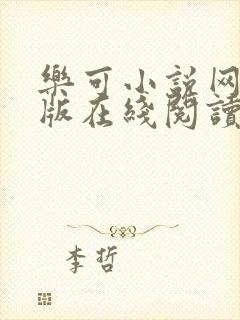 樂可小説网
版在綫閲讀
李哲